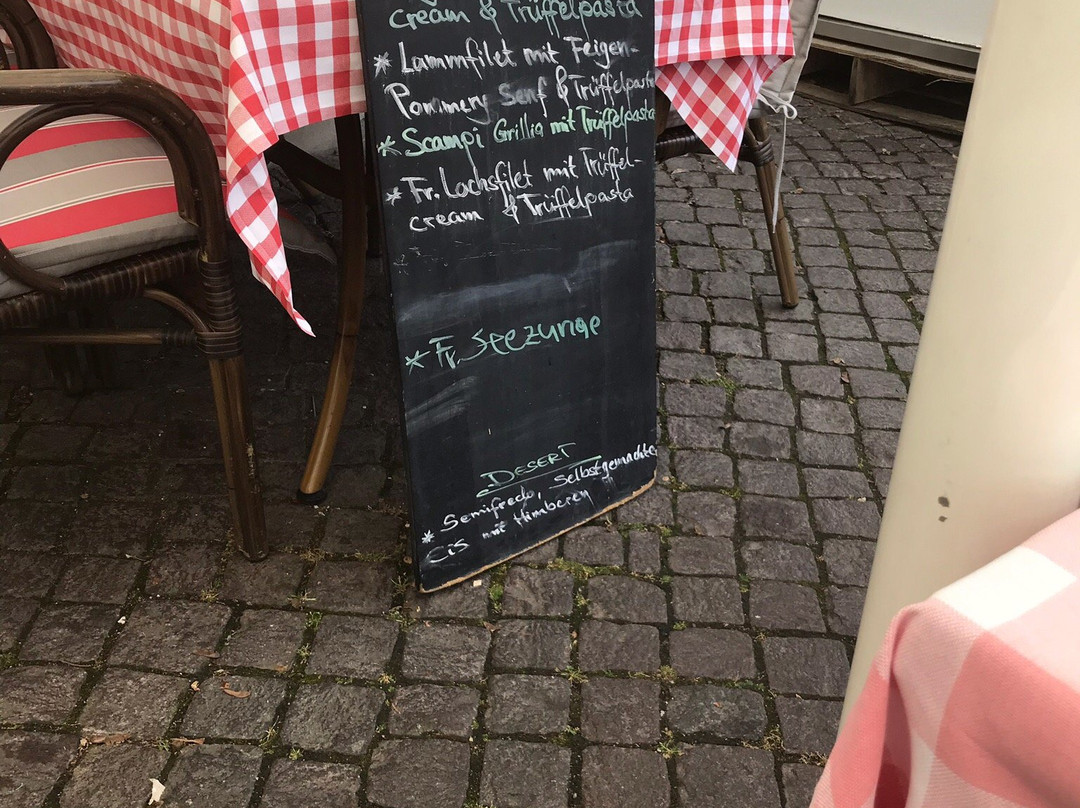 cream & Trüffelpasta
* Lammfilet mit Feigen-
Pommery Senf & Trüffelpasta
* Scampi Grillia mit Trüffelpasta
* Fr. Lachsfilet mit Trüffel-
cream & Trüffelpasta
* Fr. Seezunge
DESERT
* Semifredo, Selbstgemachtes
Eis mit Himbeeren